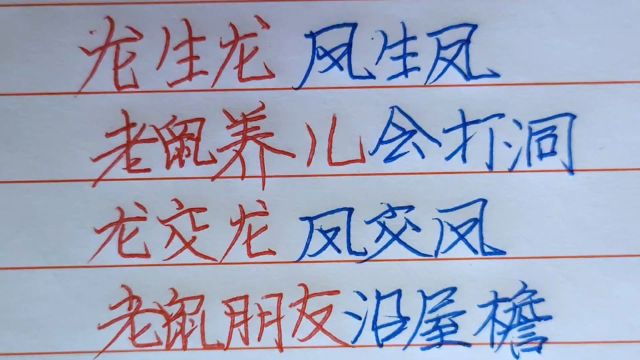 龙生龙 凤生凤
老鼠养儿会打洞
龙交龙 凤交凤
老鼠朋友沿屋檐